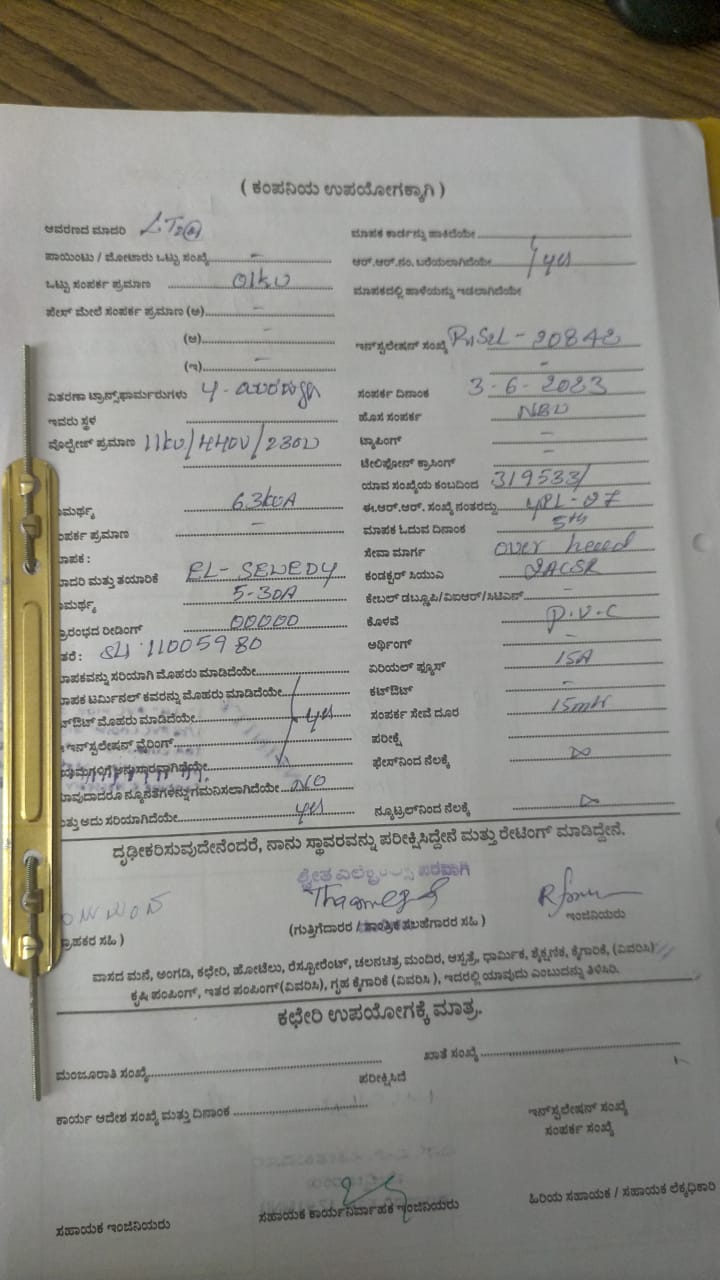 ( ಕಂಪನಿಯ ಉಪಯೋಗಕ್ಕಾಗಿ )
ಆವರಣದ ಮಾದರಿ LT2(a) ಮಾಪಕ ಕಾರ್ಡನ್ನು ಹಾಕಿದೆಯೇ
ಪಾಯಿಂಟು / ಮೋಟಾರು ಒಟ್ಟು ಸಂಖ್ಯೆ - ಆರ್.ಆರ್.ನಂ. ಬರೆಯಲಾಗಿದೆಯೇ yes
ಒಟ್ಟು ಸಂಪರ್ಕ ಪ್ರಮಾಣ 01kw ಮಾಪಕದಲ್ಲಿ ಹಾಳೆಯನ್ನು ಇಡಲಾಗಿದೆಯೇ
ಫೇಸ್ ಮೇಲೆ ಸಂಪರ್ಕ ಪ್ರಮಾಣ (ಅ) -
(ಆ) - ಇನ್‌ಸ್ಟಲೇಷನ್ ಸಂಖ್ಯೆ - 20842
(ಇ) - -
ವಿತರಣಾ ಟ್ರಾನ್ಸ್‌ಫಾರ್ಮರುಗಳು ಸಂಪರ್ಕ ದಿನಾಂಕ 3-6-2023
ಇವರು ಸ್ಥಳ ಹೊಸ ಸಂಪರ್ಕ
ವೋಲ್ಟೇಜ್ ಪ್ರಮಾಣ 11kv/440v/230v ಟ್ಯಾಪಿಂಗ್ -
ಟೆಲಿಫೋನ್ ಕ್ರಾಸಿಂಗ್ -
ಯಾವ ಸಂಖ್ಯೆಯ ಕಂಬದಿಂದ 319533/
ಮರ್ಥ್ಯ 63kVA ಈ.ಆರ್.ಆರ್. ಸಂಖ್ಯೆ ನಂತರದ್ದು
ಂಪರ್ಕ ಪ್ರಮಾಣ - ಮಾಪಕ ಓದುವ ದಿನಾಂಕ 5th
ಾಪಕ : ಸೇವಾ ಮಾರ್ಗ over head
ಾದರಿ ಮತ್ತು ತಯಾರಿಕೆ EL-SEWEDY ಕಂಡಕ್ಟರ್ ಸಿಯುಎ 2ACSR
ಮರ್ಥ್ಯ 5-30A ಕೇಬಲ್ ಡಬ್ಲೂಪಿ/ವಿಐಆರ್/ಸಿಟಿಎಸ್ -
್ರಾರಂಭದ ರೀಡಿಂಗ್ 00000 ಕೊಳವೆ P.V.C
ತರೆ : 11005980 ಅರ್ಥಿಂಗ್ -
ಾಪಕವನ್ನು ಸರಿಯಾಗಿ ಮೊಹರು ಮಾಡಿದೆಯೇ ಏರಿಯಲ್ ಫ್ಯೂಸ್ 15A
ಾಪಕ ಟರ್ಮಿನಲ್ ಕವರನ್ನು ಮೊಹರು ಮಾಡಿದೆಯೇ ಕಟ್‌ಔಟ್ -
ಟ್‌ಔಟ್ ಮೊಹರು ಮಾಡಿದೆಯೇ yes ಸಂಪರ್ಕ ಸೇವೆ ದೂರ 15mtr
ಇನ್‌ಸ್ಟಲೇಷನ್ ವೈರಿಂಗ್ ಪರೀಕ್ಷೆ
ಿಯಮಗಳಿಗೆ ಅನುಸಾರವಾಗಿದೆಯೇ ಫೇಸ್‌ನಿಂದ ನೆಲಕ್ಕೆ ∞
ಾವುದಾದರೂ ನ್ಯೂನತೆಗಳನ್ನು ಗಮನಿಸಲಾಗಿದೆಯೇ NO
ತ್ತು ಅದು ಸರಿಯಾಗಿದೆಯೇ yes ನ್ಯೂಟ್ರಲ್‌ನಿಂದ ನೆಲಕ್ಕೆ ∞
ದೃಢೀಕರಿಸುವುದೇನೆಂದರೆ, ನಾನು ಸ್ಥಾವರವನ್ನು ಪರೀಕ್ಷಿಸಿದ್ದೇನೆ ಮತ್ತು ರೇಟಿಂಗ್ ಮಾಡಿದ್ದೇನೆ.
ಪರವಾಗಿ
್ರಾಹಕರ ಸಹಿ ) (ಗುತ್ತಿಗೆದಾರರ / ತಾಂತ್ರಿಕ ಸಲಹೆಗಾರರ ಸಹಿ ) ಇಂಜಿನಿಯರು
ವಾಸದ ಮನೆ, ಅಂಗಡಿ, ಕಛೇರಿ, ಹೋಟೆಲು, ರೆಸ್ಟೋರೆಂಟ್, ಚಲನಚಿತ್ರ ಮಂದಿರ, ಆಸ್ಪತ್ರೆ, ಧಾರ್ಮಿಕ, ಶೈಕ್ಷಣಿಕ, ಕೈಗಾರಿಕೆ, (ವಿವರಿಸಿ)
ಕೃಷಿ ಪಂಪಿಂಗ್, ಇತರ ಪಂಪಿಂಗ್ (ವಿವರಿಸಿ), ಗೃಹ ಕೈಗಾರಿಕೆ (ವಿವರಿಸಿ ), ಇದರಲ್ಲಿ ಯಾವುದು ಎಂಬುದನ್ನು ತಿಳಿಸಿರಿ.
ಕಛೇರಿ ಉಪಯೋಗಕ್ಕೆ ಮಾತ್ರ.
ಮಂಜೂರಾತಿ ಸಂಖ್ಯೆ ಖಾತೆ ಸಂಖ್ಯೆ
ಪರೀಕ್ಷಿಸಿದೆ
ಕಾರ್ಯ ಆದೇಶ ಸಂಖ್ಯೆ ಮತ್ತು ದಿನಾಂಕ ಇನ್‌ಸ್ಟಲೇಷನ್ ಸಂಖ್ಯೆ
ಸಂಪರ್ಕ ಸಂಖ್ಯೆ
ಸಹಾಯಕ ಇಂಜಿನಿಯರು ಸಹಾಯಕ ಕಾರ್ಯನಿರ್ವಾಹಕ ಇಂಜಿನಿಯರು ಹಿರಿಯ ಸಹಾಯಕ / ಸಹಾಯಕ ಲೆಕ್ಕಧಿಕಾರಿ